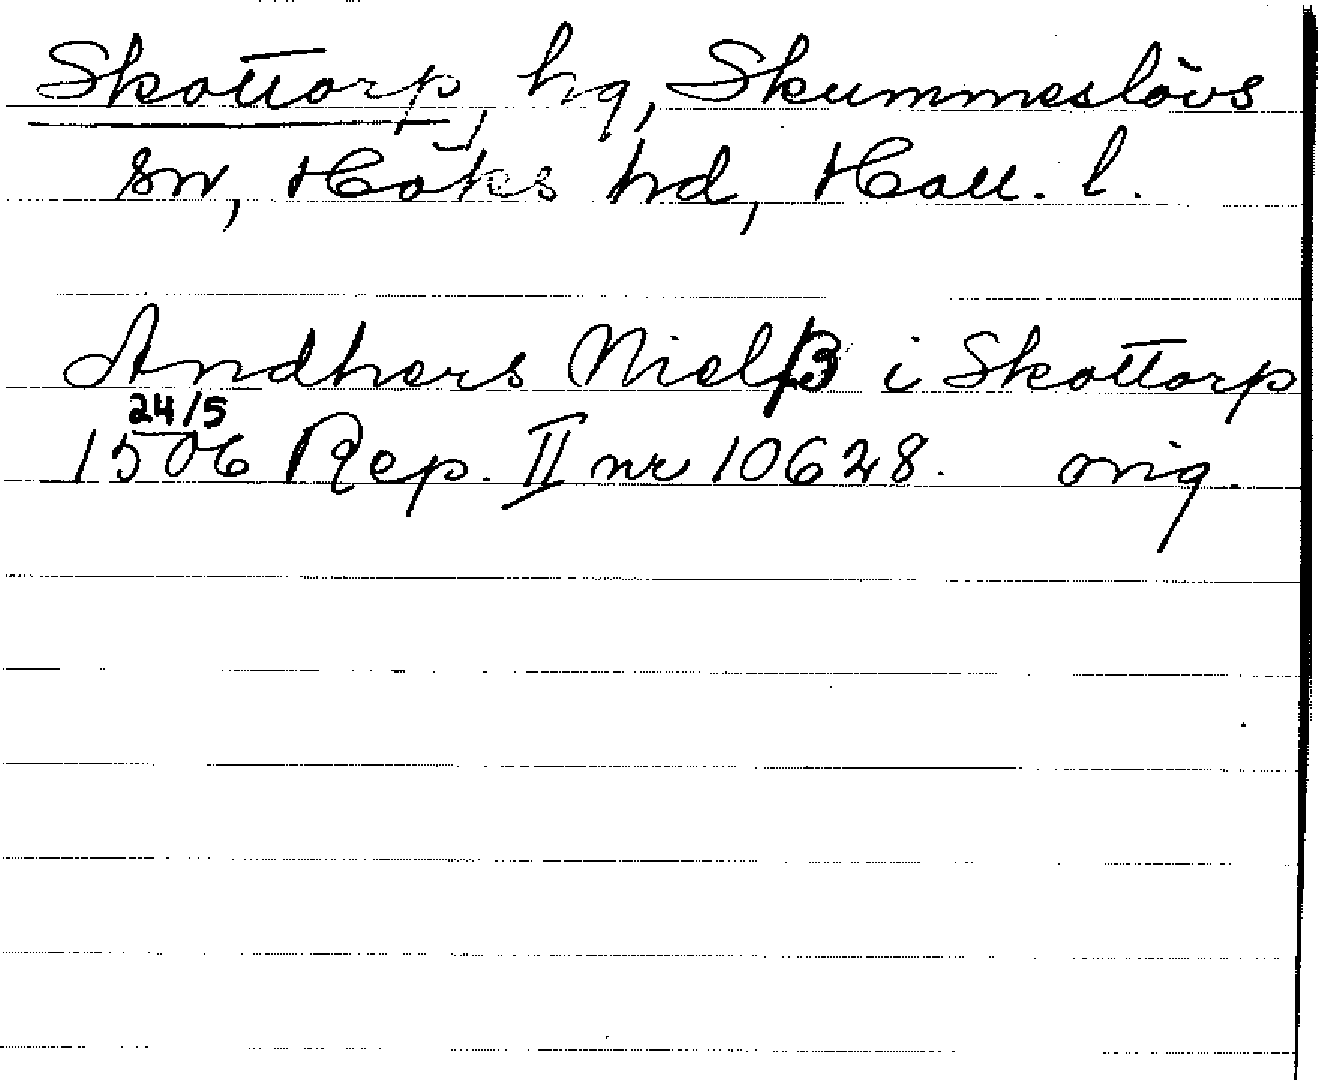 Skottorp, hg, Skummeslövs
sn, Höks hd, Hall. l.
Andhers Nielß i Skottorp
24/5
1506 Rep. II nr 10628. orig.